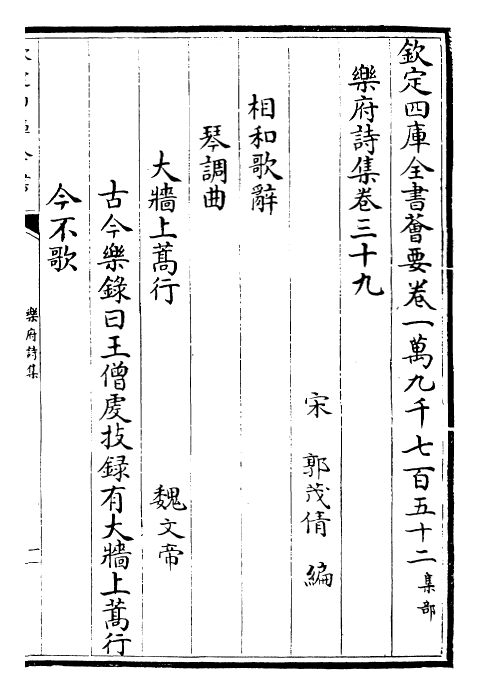 欽定四庫全書薈要卷一萬九千七百五十二集部
樂府詩集卷三十九
宋　郭茂倩　編
相和歌辭
琴調曲
大牆上蒿行　魏文帝
古今樂錄曰王僧虔技録有大牆上蒿行
今不歌
樂府詩集
二